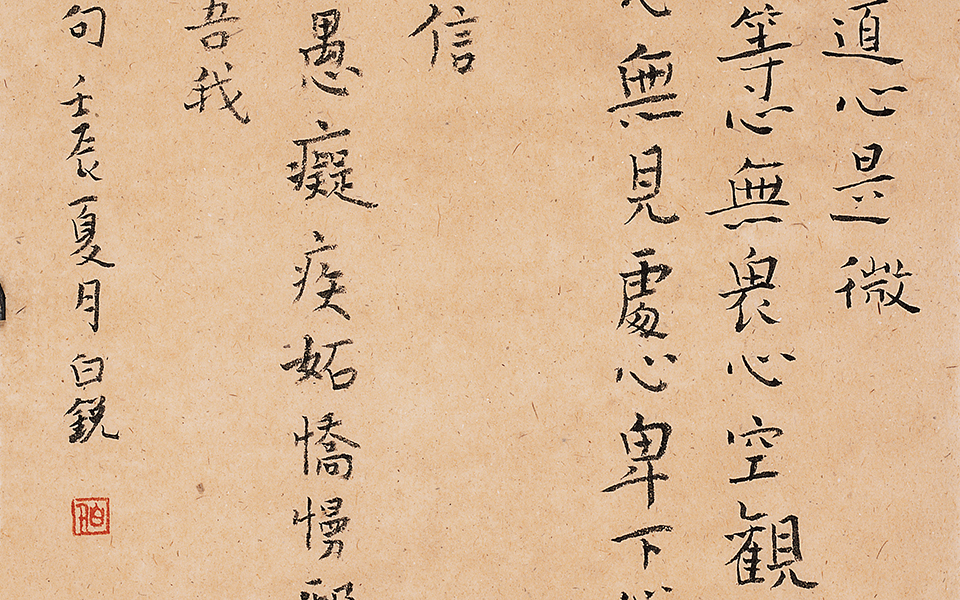 道心是微
等心無畏心空觀
無見處心卑下
信
愚癡疾妬憍慢
吾我
句 壬辰夏月 白銳